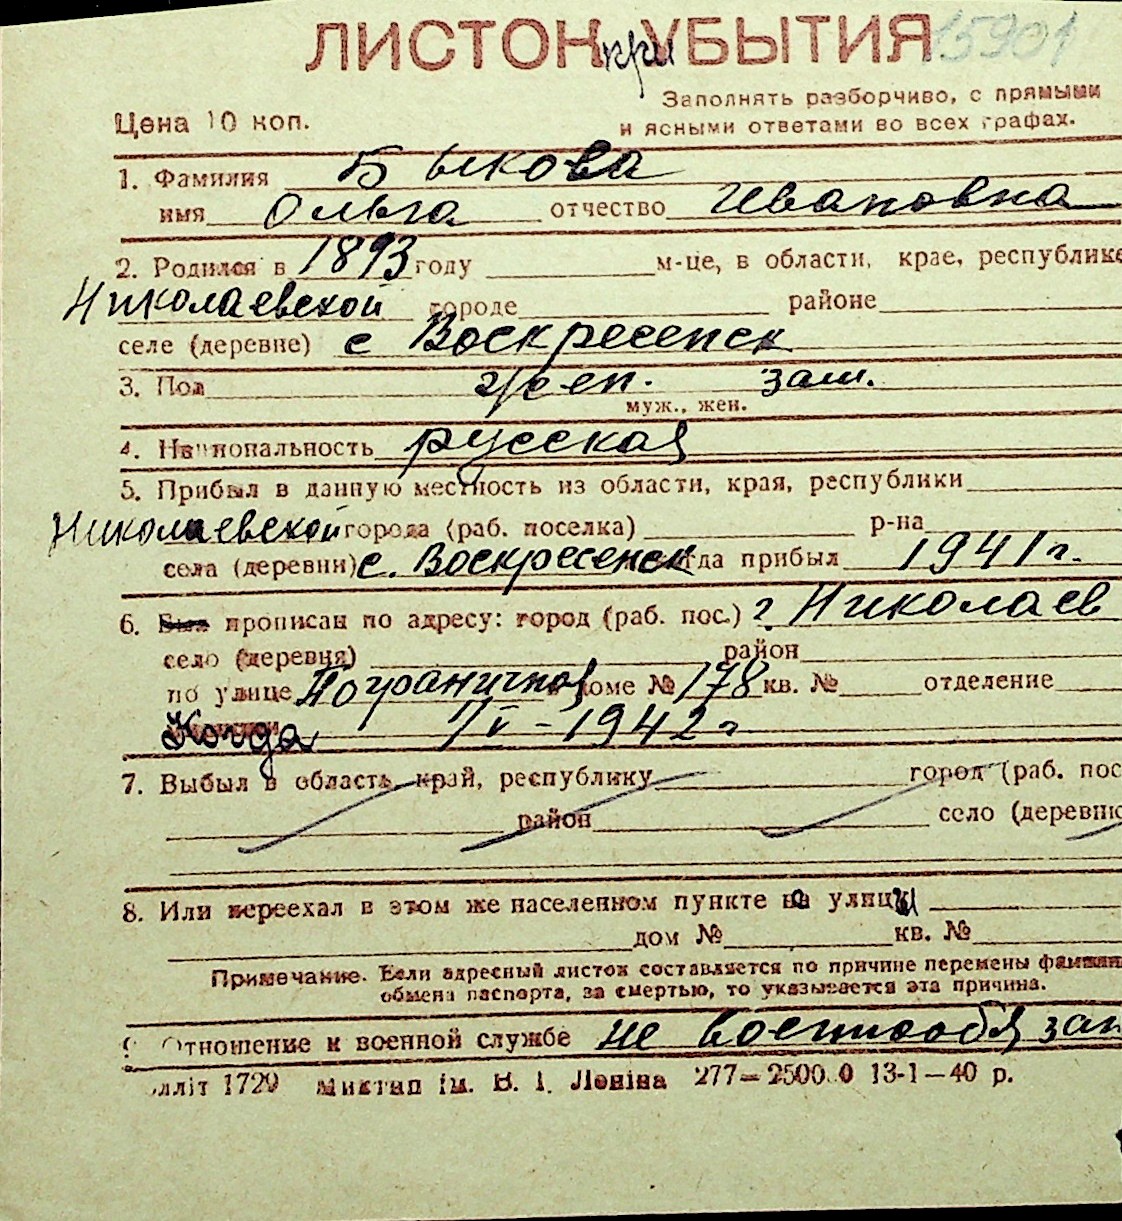 ЛИСТОК при УБЫТИЯ 15901
Заполнять разборчиво, с прямыми
Цена 10 коп.
и ясными ответами во всех графах.
1. Фамилия Быкова
имя Ольга отчество Ивановна
2. Родился в 1893 году м-це, в области, крае, республике
Николаевской городе районе
селе (деревне) с Воскресенск
3. Пол жен. зам.
муж., жен.
4. Национальность русская
5. Прибыл в данную местность из области, края, республики
Николаевской города (раб. поселка) р-на
села (деревни) с. Воскресенск когда прибыл 1941 г.
6. Был прописан по адресу: город (раб. пос.) г. Николаев
село (деревня) район
по улице Пограничная доме № 178 кв. № отделение
Когда 1/V - 1942 г
7. Выбыл в область, край, республику город (раб. пос
район село (деревню
8. Или переехал в этом же населенном пункте на улицы
дом № кв. №
Примечание. Если адресный листок составляется по причине перемены фамилии
обмена паспорта, за смертью, то указывается эта причина.
9. Отношение к военной службе не военнообязан
лліт 1729 Миктип ім. В. І. Леніна 277—2500.0 13-1—40 р.